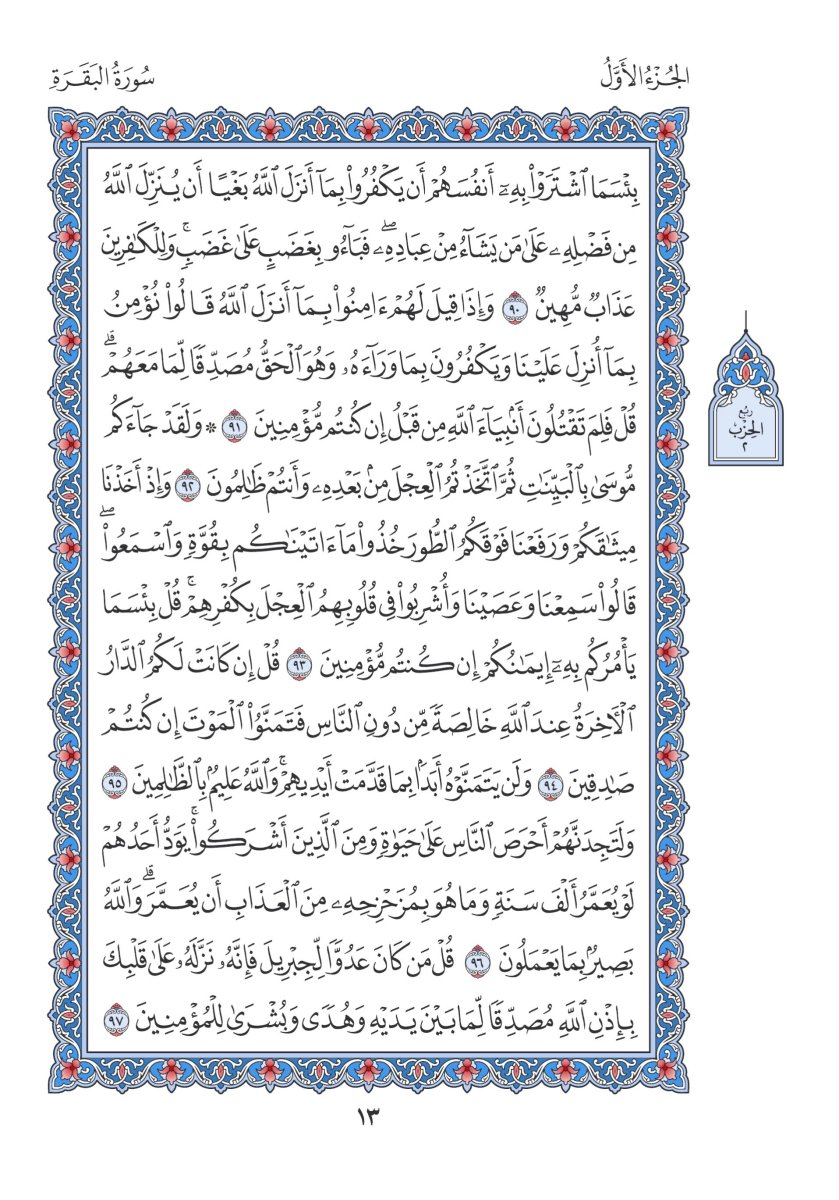 الجُزْءُ الأَوَّلُ
سُورَةُ البَقَرَةِ
بِئْسَمَا ٱشْتَرَوْا۟ بِهِۦٓ أَنفُسَهُمْ أَن يَكْفُرُوا۟ بِمَآ أَنزَلَ ٱللَّهُ بَغْيًا أَن يُنَزِّلَ ٱللَّهُ
مِن فَضْلِهِۦ عَلَىٰ مَن يَشَآءُ مِنْ عِبَادِهِۦ ۖ فَبَآءُو بِغَضَبٍ عَلَىٰ غَضَبٍ ۚ وَلِلْكَٰفِرِينَ
عَذَابٌ مُّهِينٌ ٩٠ وَإِذَا قِيلَ لَهُمْ ءَامِنُوا۟ بِمَآ أَنزَلَ ٱللَّهُ قَالُوا۟ نُؤْمِنُ
بِمَآ أُنزِلَ عَلَيْنَا وَيَكْفُرُونَ بِمَا وَرَآءَهُۥ وَهُوَ ٱلْحَقُّ مُصَدِّقًا لِّمَا مَعَهُمْ ۗ
قُلْ فَلِمَ تَقْتُلُونَ أَنۢبِيَآءَ ٱللَّهِ مِن قَبْلُ إِن كُنتُم مُّؤْمِنِينَ ٩١ * وَلَقَدْ جَآءَكُم
مُّوسَىٰ بِٱلْبَيِّنَٰتِ ثُمَّ ٱتَّخَذْتُمُ ٱلْعِجْلَ مِنۢ بَعْدِهِۦ وَأَنتُمْ ظَٰلِمُونَ ٩٢ وَإِذْ أَخَذْنَا
مِيثَٰقَكُمْ وَرَفَعْنَا فَوْقَكُمُ ٱلطُّورَ خُذُوا۟ مَآ ءَاتَيْنَٰكُم بِقُوَّةٍ وَٱسْمَعُوا۟ ۖ
قَالُوا۟ سَمِعْنَا وَعَصَيْنَا وَأُشْرِبُوا۟ فِى قُلُوبِهِمُ ٱلْعِجْلَ بِكُفْرِهِمْ ۚ قُلْ بِئْسَمَا
يَأْمُرُكُم بِهِۦٓ إِيمَٰنُكُمْ إِن كُنتُم مُّؤْمِنِينَ ٩٣ قُلْ إِن كَانَتْ لَكُمُ ٱلدَّارُ
ٱلْءَاخِرَةُ عِندَ ٱللَّهِ خَالِصَةً مِّن دُونِ ٱلنَّاسِ فَتَمَنَّوُا۟ ٱلْمَوْتَ إِن كُنتُمْ
صَٰدِقِينَ ٩٤ وَلَن يَتَمَنَّوْهُ أَبَدًۢا بِمَا قَدَّمَتْ أَيْدِيهِمْ ۚ وَٱللَّهُ عَلِيمٌۢ بِٱلظَّٰلِمِينَ ٩٥
وَلَتَجِدَنَّهُمْ أَحْرَصَ ٱلنَّاسِ عَلَىٰ حَيَوٰةٍ وَمِنَ ٱلَّذِينَ أَشْرَكُوا۟ ۚ يَوَدُّ أَحَدُهُمْ
لَوْ يُعَمَّرُ أَلْفَ سَنَةٍ وَمَا هُوَ بِمُزَحْزِحِهِۦ مِنَ ٱلْعَذَابِ أَن يُعَمَّرَ ۗ وَٱللَّهُ
بَصِيرٌۢ بِمَا يَعْمَلُونَ ٩٦ قُلْ مَن كَانَ عَدُوًّا لِّجِبْرِيلَ فَإِنَّهُۥ نَزَّلَهُۥ عَلَىٰ قَلْبِكَ
بِإِذْنِ ٱللَّهِ مُصَدِّقًا لِّمَا بَيْنَ يَدَيْهِ وَهُدًى وَبُشْرَىٰ لِلْمُؤْمِنِينَ ٩٧
رُبْع
الحِزْب
٢
١٣